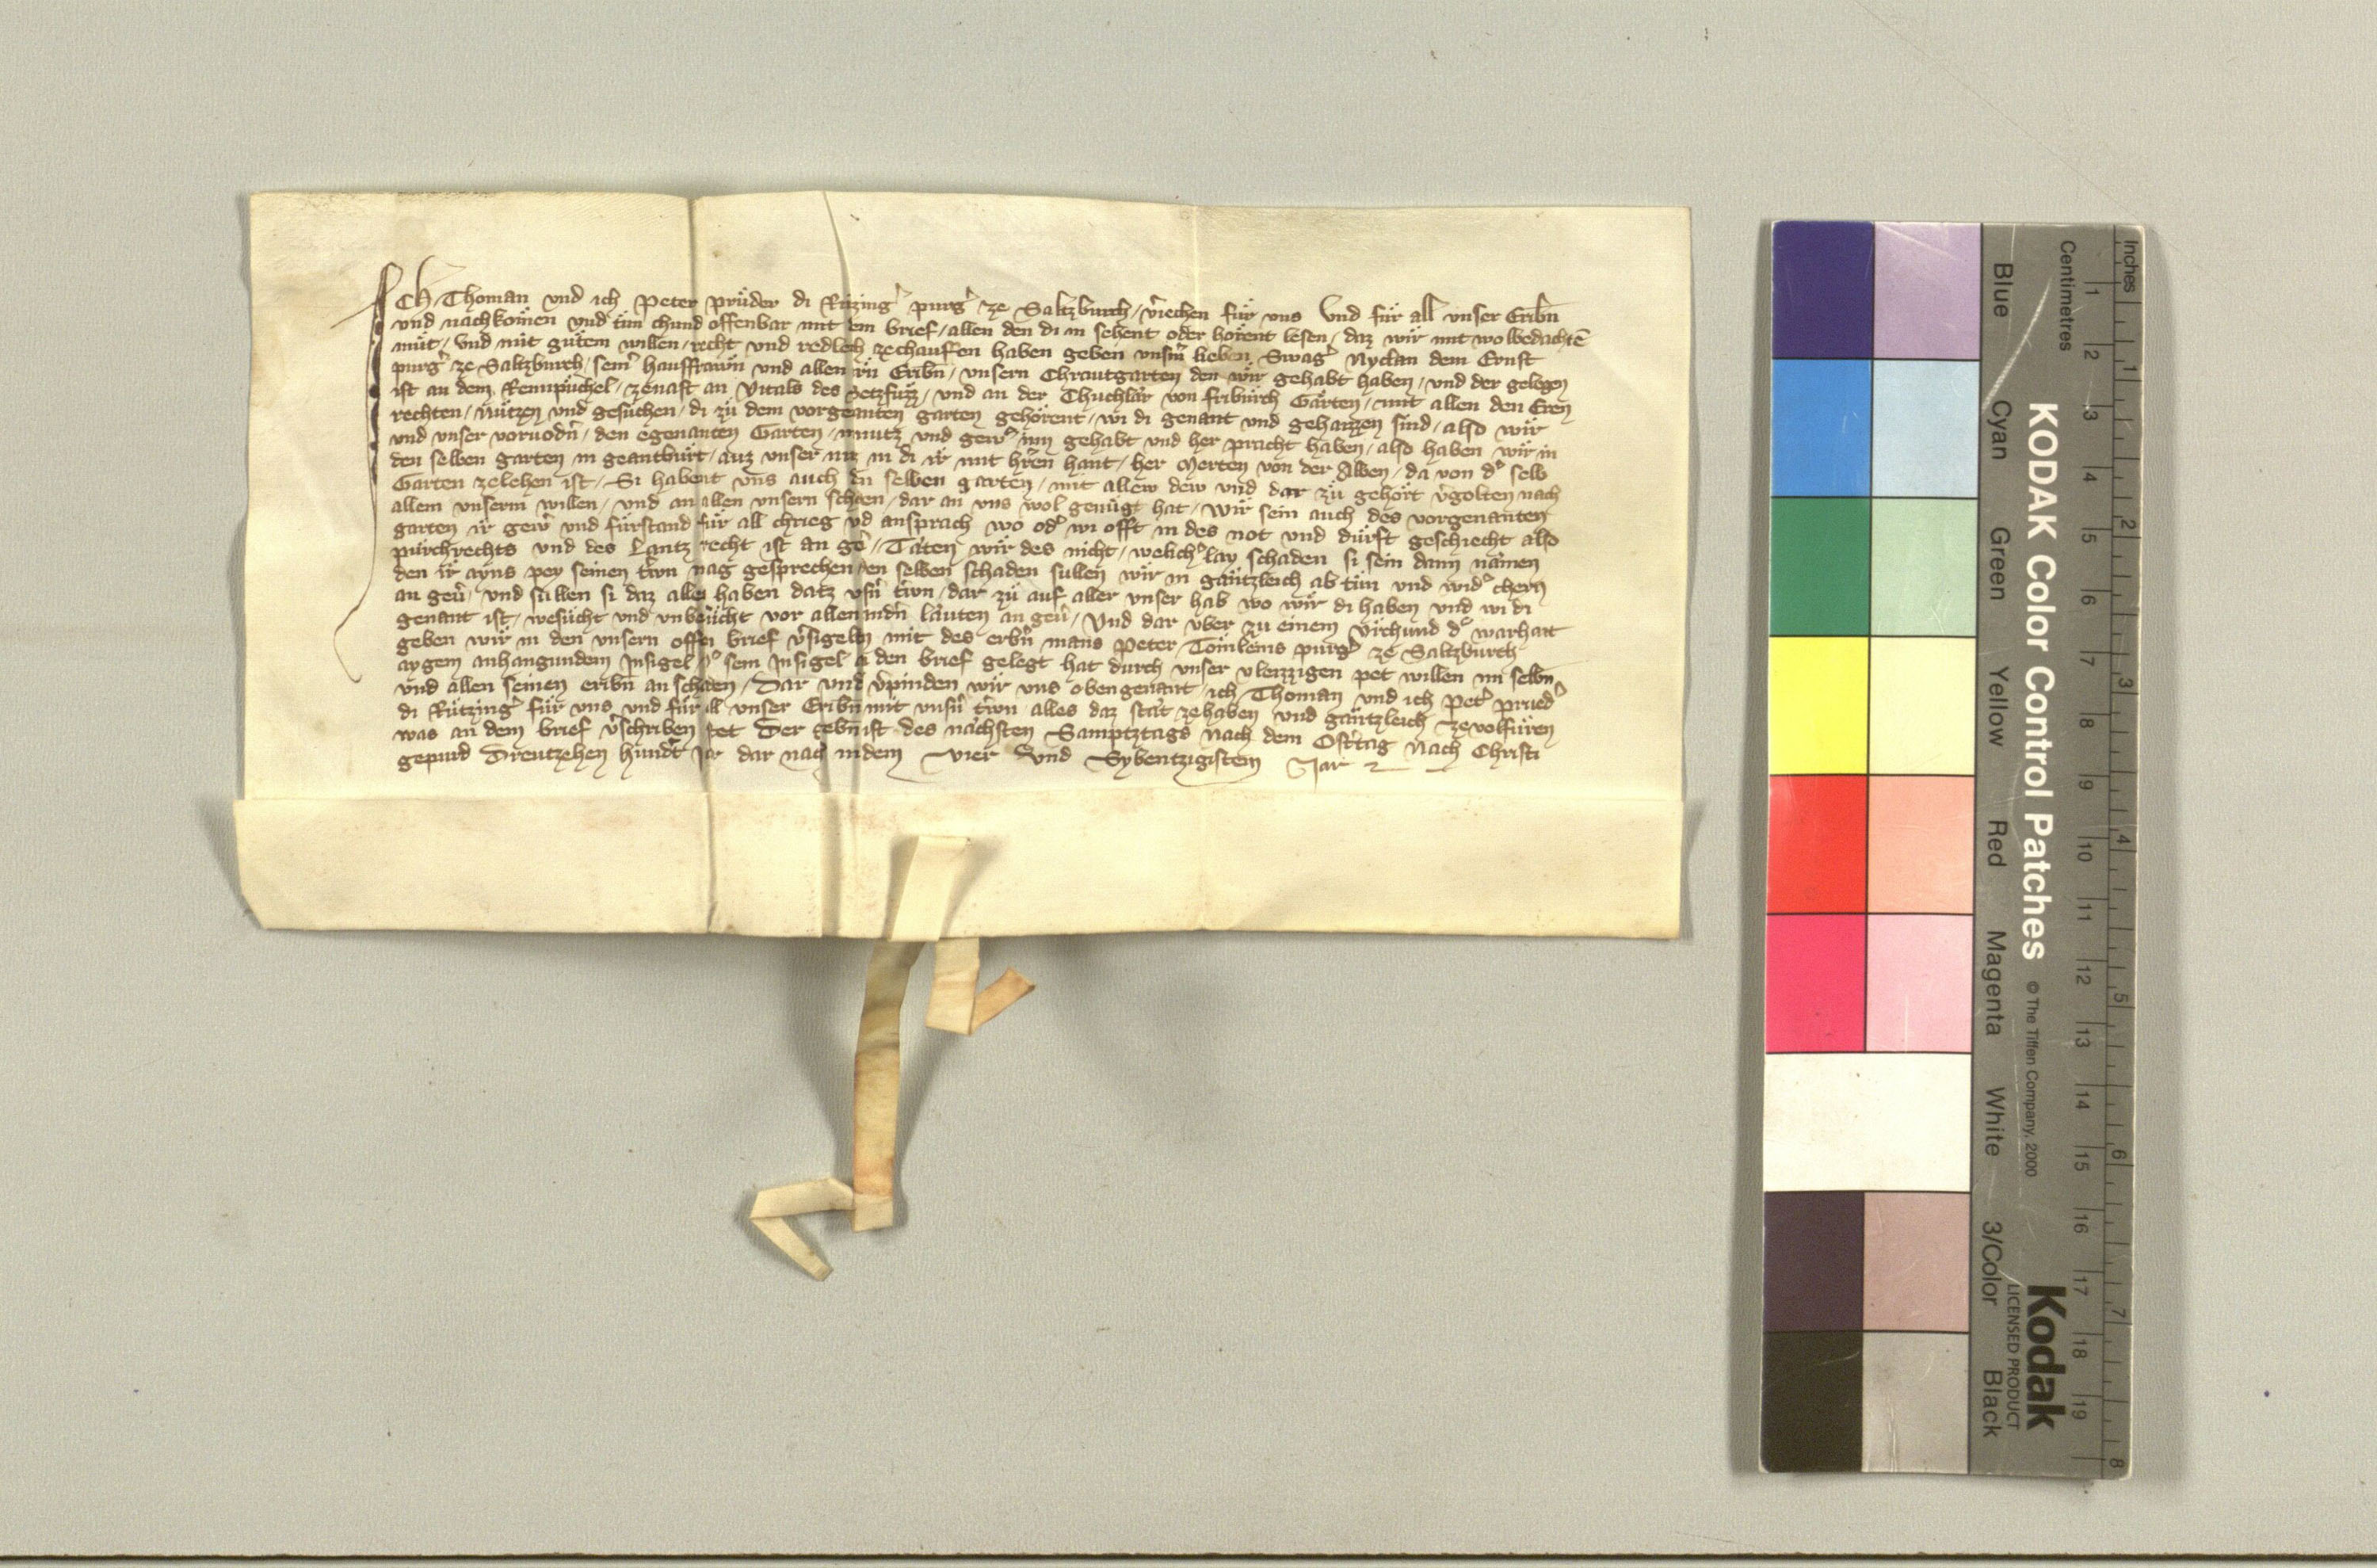 ICh Thoman vnd ich Peter prüder di Rützing̉ purg̉ ze Saltzburch / v̉iechen für vns Vnd für all vnser Eribn
vnd nachkomen vnd tün chund offenbar mit brief / allen den di in sehent oder horent lesen / daz wir mit wolbedachtē
müt / vnd mit gutem willen / recht vnd redleich zechauffen haben geben vnsm̉ lieben Swag̉ Nyclan dem Ernst
purg̉ ze Saltzburch / sein̉ hauffrawn vnd allen irn Eribn / vnsern Chrautgarten den wir gehabt haben / vnd der gelegen
ist an dem Rennpüchel / zenast an Vitals des / vnd an der Thuchlar von friburch Garten / mit allen den Eren
rechten / nützen vnd gesuchen / di zü dem vorgenanten garten gehörent / wi di genant vnd gehaizzen sind / also wir
vnd vnser voruodn̉ / den egenanten Garten / in nutz vnd gew̉ inn gehabt vnd her pracht haben / also haben wir in
den selben garten in geantburt / auz vnser in di ir mit hr̉en hant / her Merten von der Alben / da von d̉ selb
Garten zelehen ist / Si habent vns auch den selben garten / mit allew dew vnd dar zü gehört v̉golten nach
allem vnserm willen / vnd an allen vnsern schaden / dar an vns wol genügt hat / Wir sein auch des vorgenanten
garten ir gew̉ vnd fürstand für all chrieg vnd ansprach wo od̉ wi offt in des not vnd dürft geschiecht also
purchrechts vnd des Lantz recht ist an gẻ / Täten wir des nicht / welich̉lay schaden si sein dann namen
den ir ayns pey seinen trwn mag gesprechen den selben schaden sullen wir in gäntzleich ab tün vnd wid̉ chern
an gev̉ / vnd sullen si daz alles haben datz vsn̉ trwn / dar zü auf aller vnser hab wo wir di haben vnd wi di
genant ist / wesücht vnd vnbesücht vor allen andn̉ läuten an gev̉ / Vnd dar vber zu einem vrchund d̉ warhait
geben wir in den vnsern offen brief v̉sigelten mit des erbn̉ mans Peter Tömleins purg̉ ze Saltzburch
aygem anhangundem Insigel d̉ sein Insigel an den brief gelegt hat durch vnser vleizzigen pet willen im selbn
vnd allen seinen eribn an schaden / Dar vnd̉ v̉pinden wir vns obengenant ich Thoman vnd ich Pet̉ prüed̉
di Rützing̉ für vns vnd für all vnser Eribn mit vnsn̉ trwn alles daz stät ze haben vnd gäntzleich zevolfüren
was an dem brief v̉schriben stet Der gebn ist des nächsten Samptztags Nach dem Ostertag Nach Christi
gepurd Dreutzehen hundt̉ Jar dar nach in dem Vier Vnd Sybentzigistem Jar
KODAK Color Control Patches © The Tiffen Company, 2000
Kodak
LICENSED PRODUCT
Inches 1 2 3 4 5 6 7 8
Centimetres 1 2 3 4 5 6 7 8 9 10 11 12 13 14 15 16 17 18 19
Blue Cyan Green Yellow Red Magenta White 3/Color Black